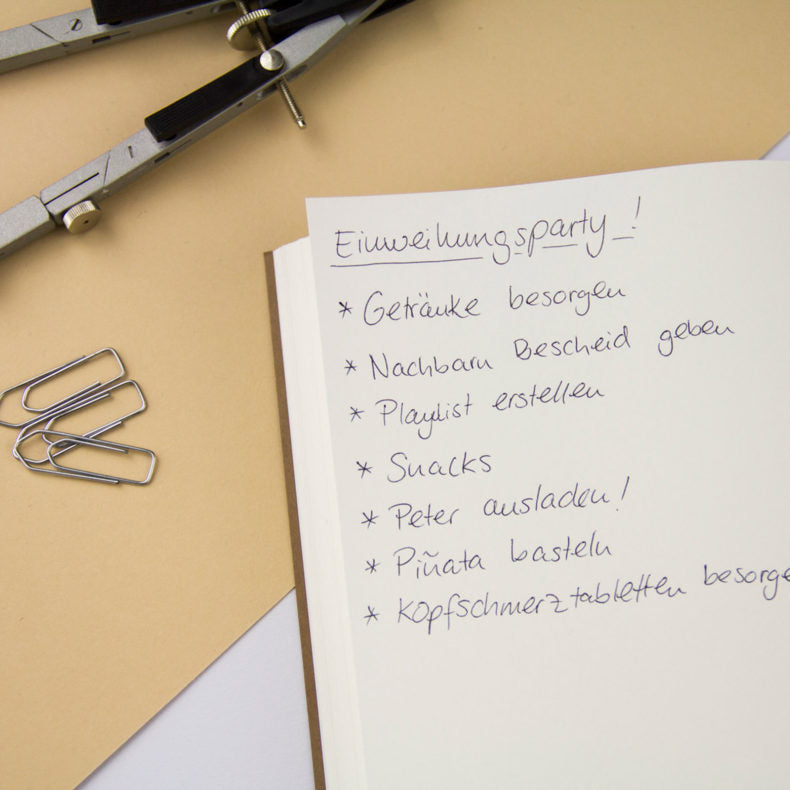 Einweihungsparty!
* Getränke besorgen
* Nachbarn Bescheid geben
* Playlist erstellen
* Snacks
* Peter ausladen!
* Piñata basteln
* Kopfschmerztabletten besorge